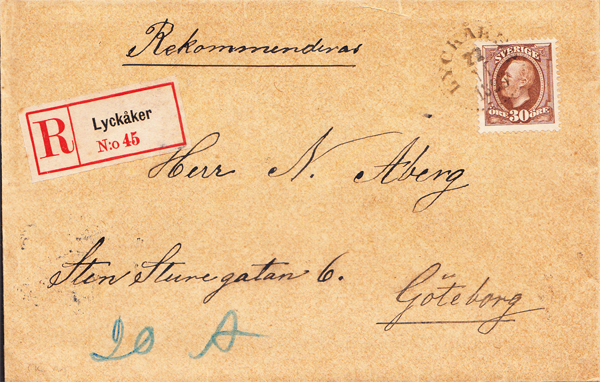 Rekommenderas
LYCKÅKER
22
SVERIGE
ÖRE 30 ÖRE
R
Lyckåker
N:o 45
Herr N. Aberg
Sten Sturegatan 6.
Göteborg
20 A